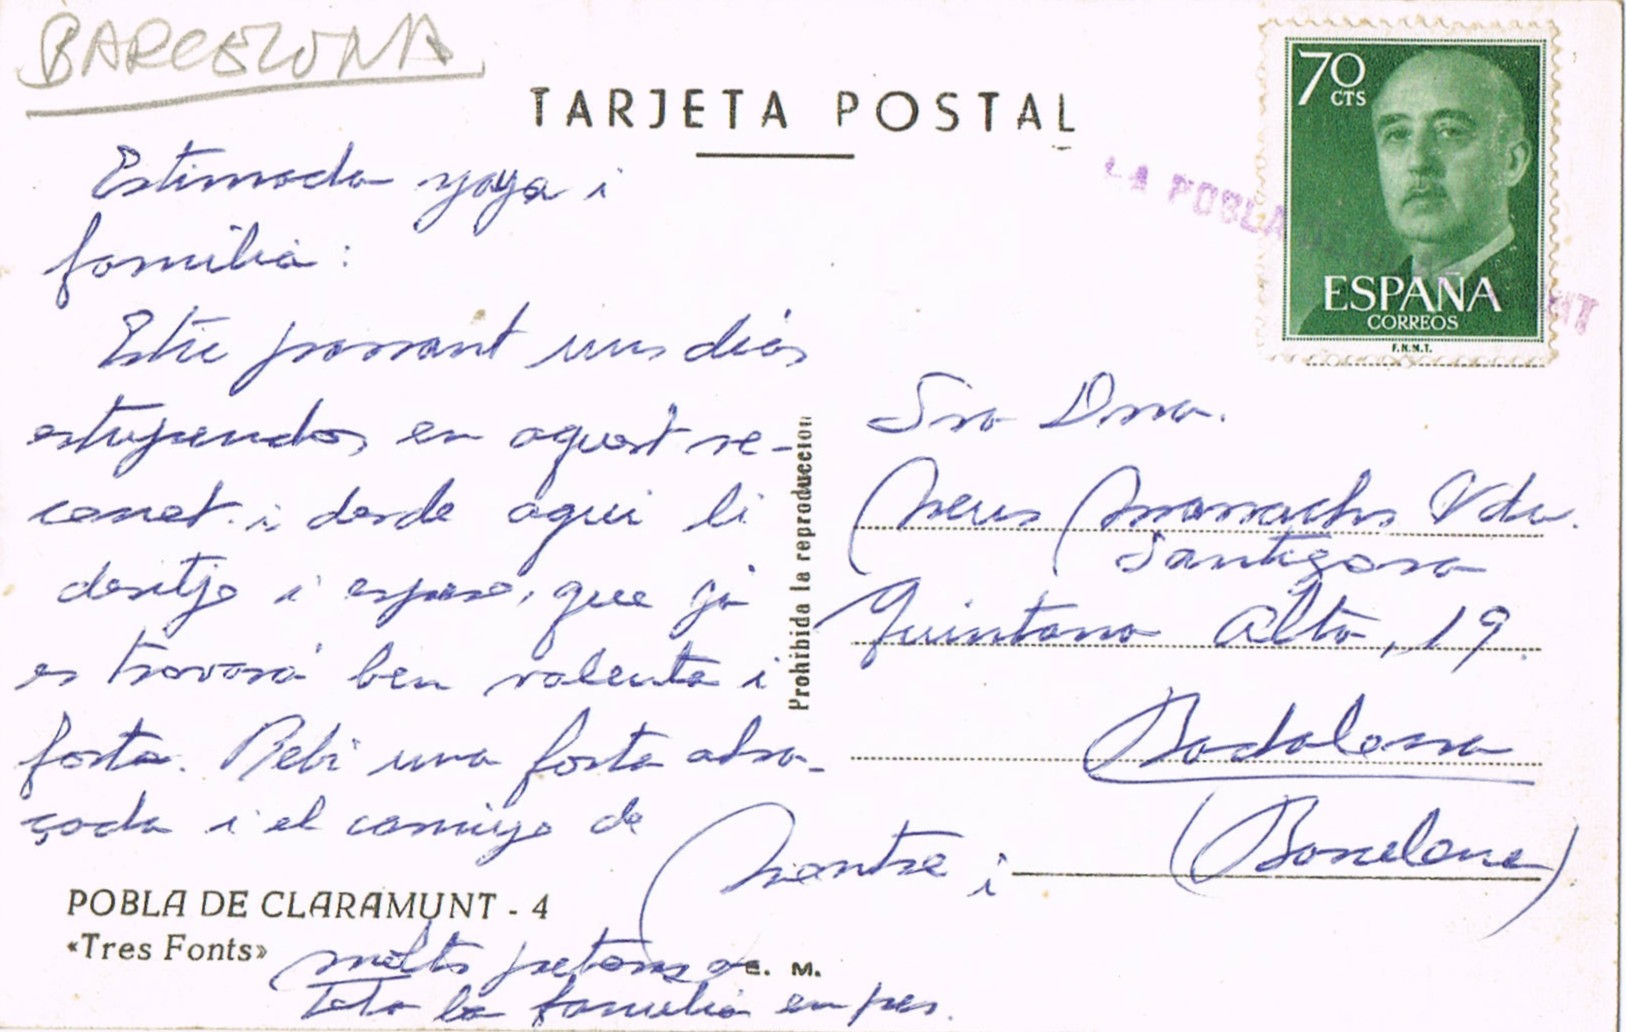 BARCELONA
TARJETA POSTAL
70
CTS
ESPAÑA
CORREOS
F.N.M.T.
LA POBLA DE
NT
Estimada yaya i
familia:
Estic passant uns dias
estupendos en aquest re-
conet i desde aqui li
desitjo i espero, que ja
es trovará ben valenta i
forta. Rebi una forta abra-
çada i el carinyo de
Montse i
molts petons a
Tota la familia en pes.
Prohibida la reproducción
Sra Dna.
Neus Vda.
Santigosa
Quintana Alta, 19
Badalona
(Barcelona)
POBLA DE CLARAMUNT - 4
«Tres Fonts»
E. M.